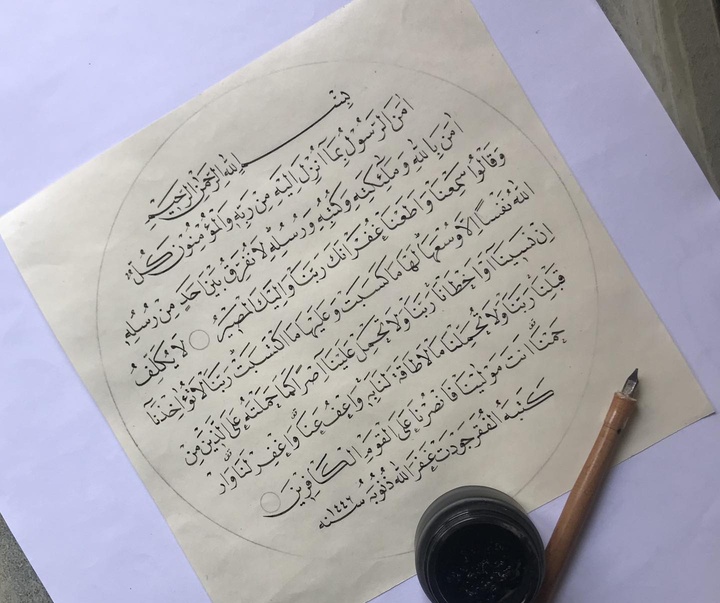 بِسْمِ اللهِ الرَّحْمٰنِ الرَّحِيمِ
اٰمَنَ الرَّسُولُ بِمَا اُنْزِلَ اِلَيْهِ مِنْ رَبِّهِ وَالْمُؤْمِنُونَ كُلٌّ
اٰمَنَ بِاللهِ وَمَلٰئِكَتِهِ وَكُتُبِهِ وَرُسُلِهِ لَا نُفَرِّقُ بَيْنَ اَحَدٍ مِنْ رُسُلِهِ
وَقَالُوا سَمِعْنَا وَاَطَعْنَا غُفْرَانَكَ رَبَّنَا وَاِلَيْكَ الْمَصِيرُ لَا يُكَلِّفُ
اللهُ نَفْسًا اِلَّا وُسْعَهَا لَهَا مَا كَسَبَتْ وَعَلَيْهَا مَا اكْتَسَبَتْ رَبَّنَا لَا تُؤَاخِذْنَا
اِنْ نَسِينَا اَوْ اَخْطَأْنَا رَبَّنَا وَلَا تَحْمِلْ عَلَيْنَا اِصْرًا كَمَا حَمَلْتَهُ عَلَى الَّذِينَ مِنْ
قَبْلِنَا رَبَّنَا وَلَا تُحَمِّلْنَا مَا لَا طَاقَةَ لَنَا بِهِ وَاعْفُ عَنَّا وَاغْفِرْ لَنَا وَارْ
حَمْنَا اَنْتَ مَوْلٰينَا فَانْصُرْنَا عَلَى الْقَوْمِ الْكَافِرِينَ
كَتَبَهُ الْفَقِير جَوْدَت غَفَرَ اللهُ ذُنُوبَهُ سنه ١٤٤٦